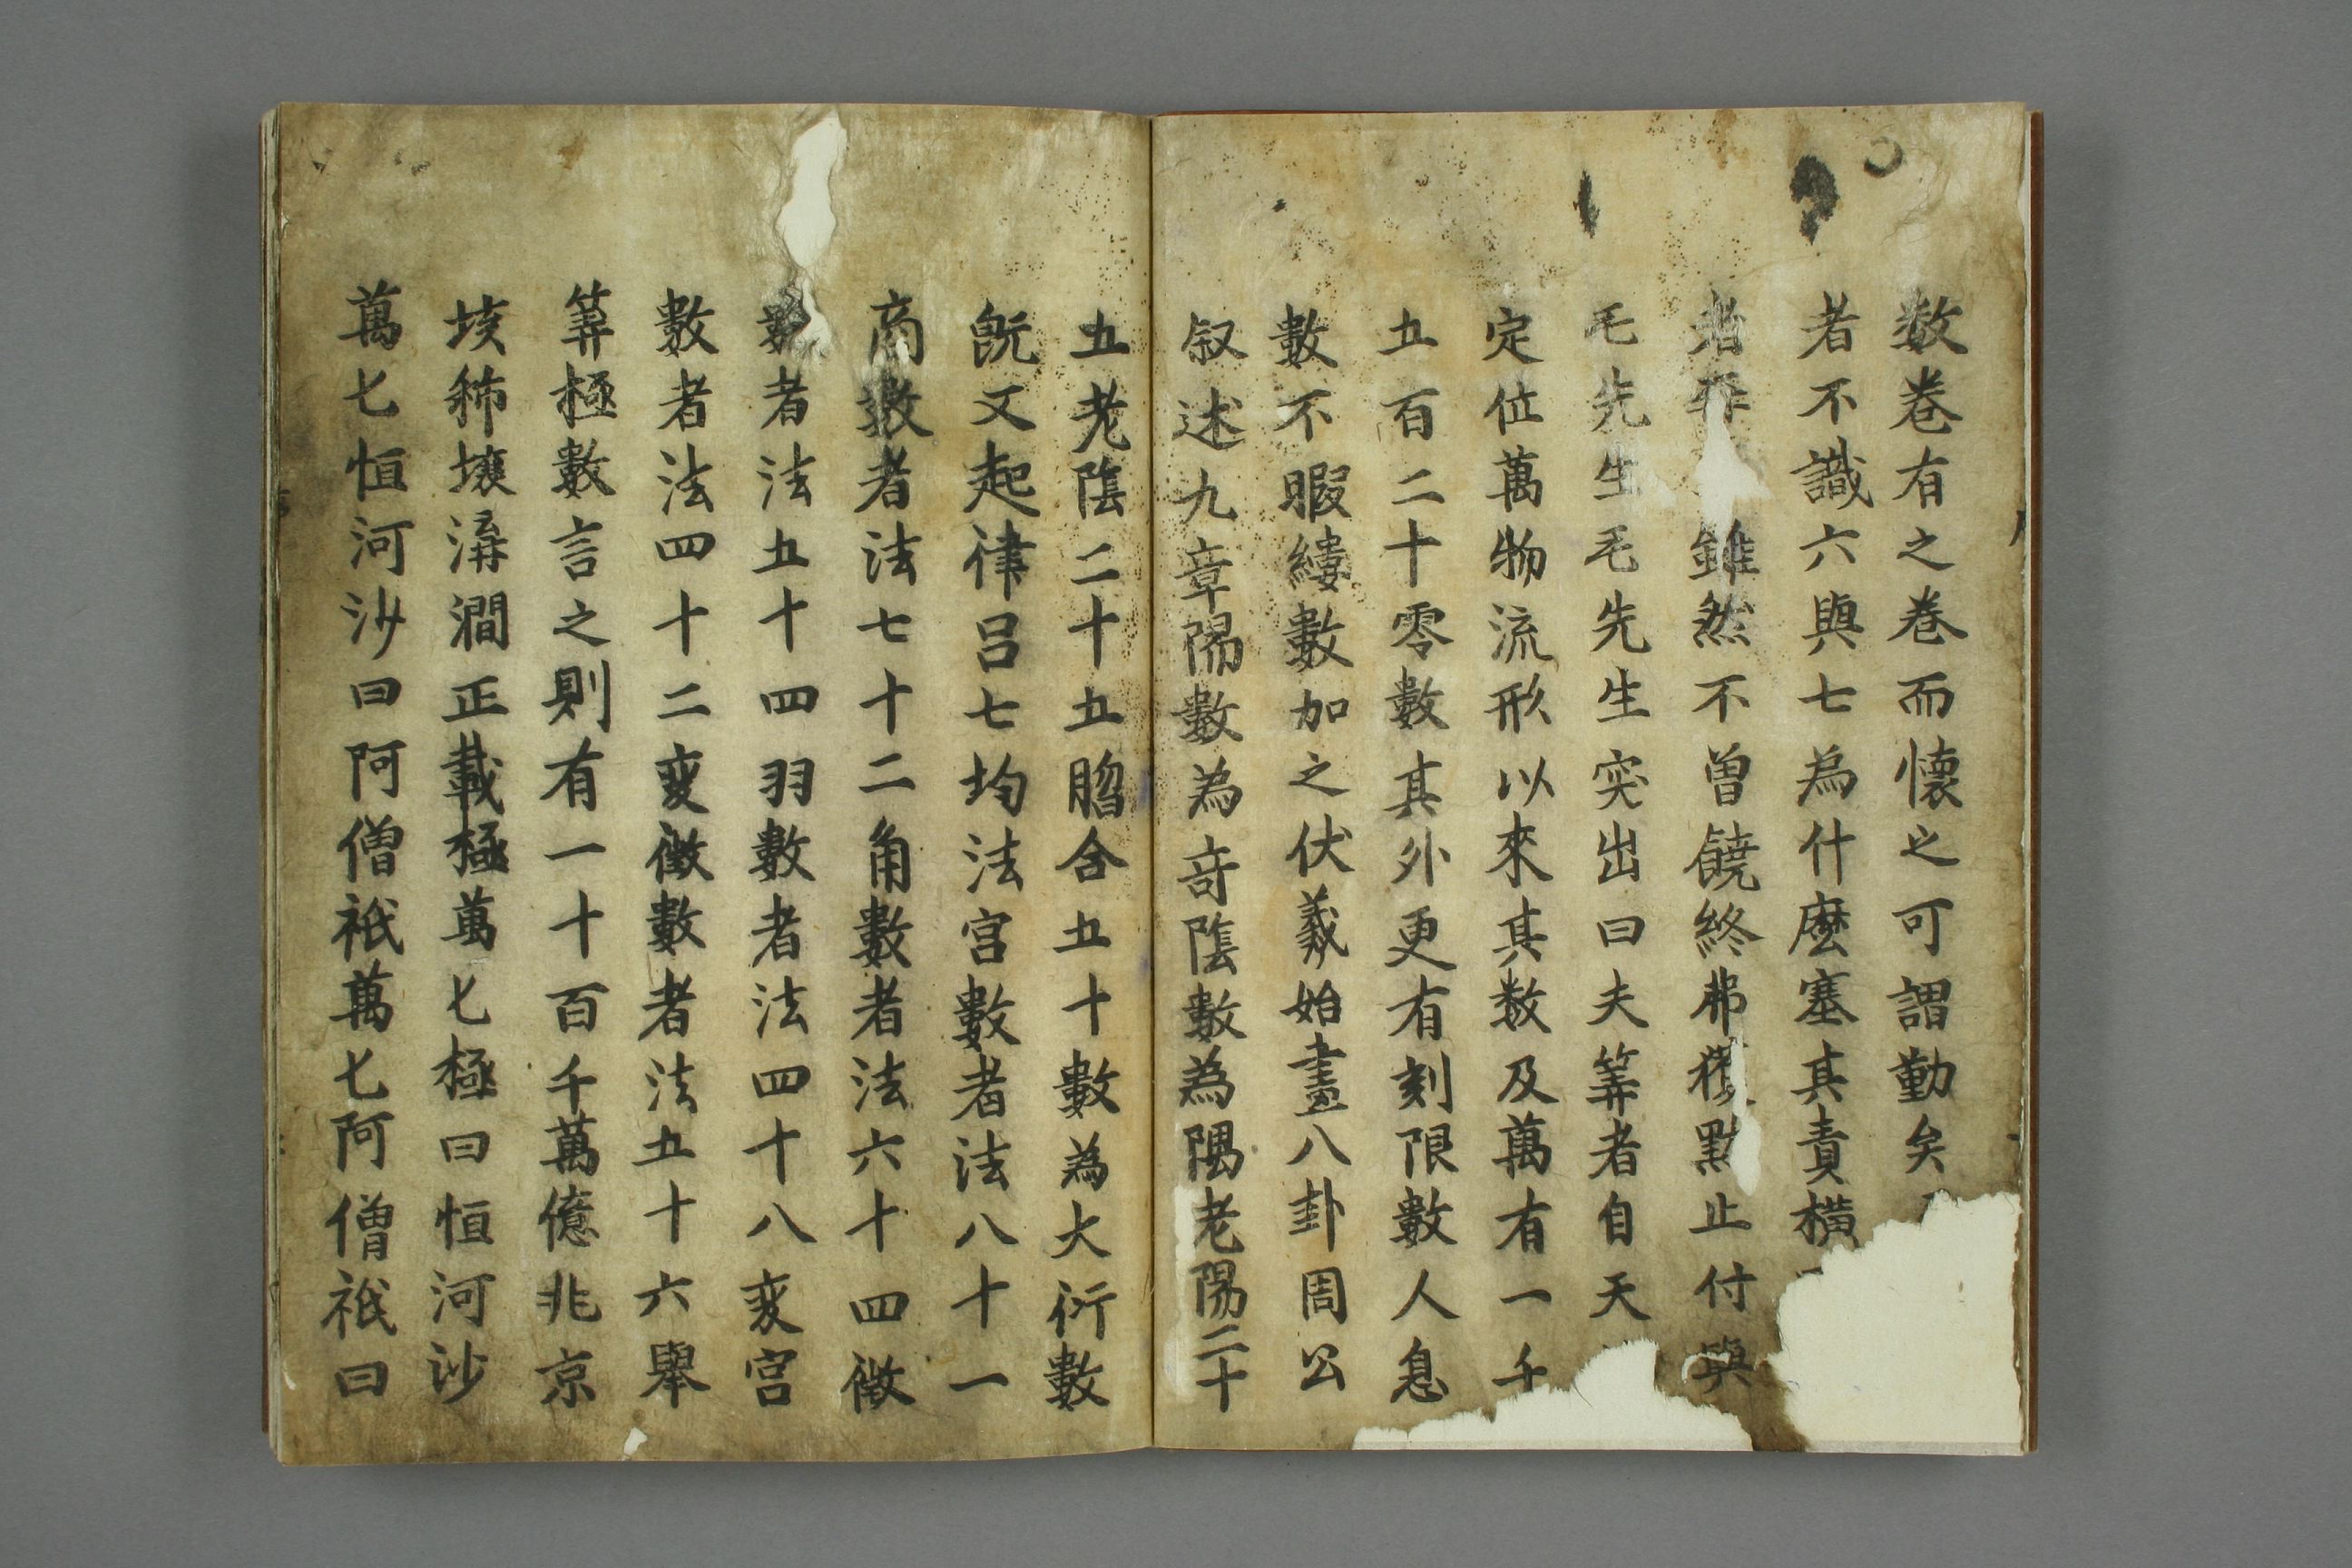 数巻有之巻而懐之可謂勤矣
者不識六與七為什麼塞其責横
者 雖然不曽饒終弗獲黙止付與
毛先生毛先生突出曰夫筭者自天
定位萬物流形以來其数及萬有一千
五百二十零數其外更有刻限數人息
數不暇縷數加之伏羲始畫八卦周公
叙述九章陽數為竒陰數為隅老陽二十
五老陰二十五脗合五十數為大衍數
既又起律呂七均法宮數者法八十一
商數者法七十二角數者法六十四徴
數者法五十四羽數者法四十八変宮
數者法四十二変徴數者法五十六舉
筭極數言之則有一十百千萬億兆京
垓秭壌溝澗正載極萬七極曰恒河沙
萬七恒河沙曰阿僧祇萬七阿僧祇曰